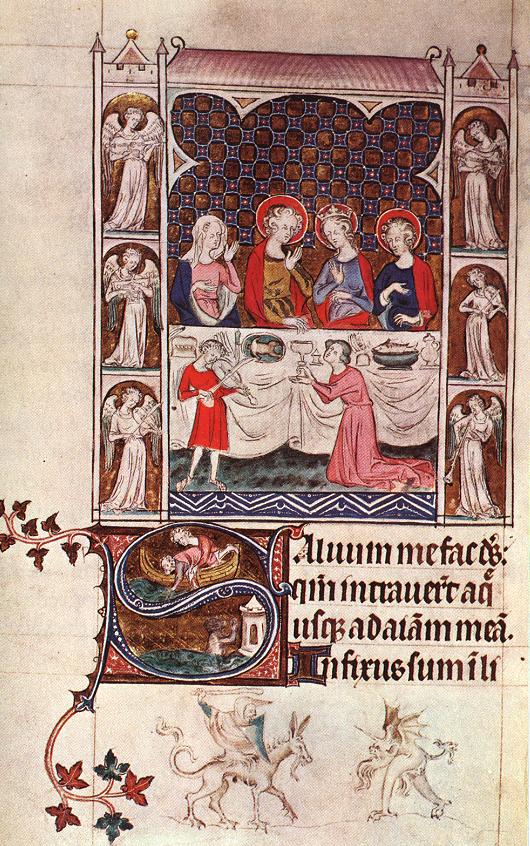 Saluum me fac d̄s:
qm̄ intrauer̄t aq̄
usq; ad aīam meā.
Infixus sum ī li